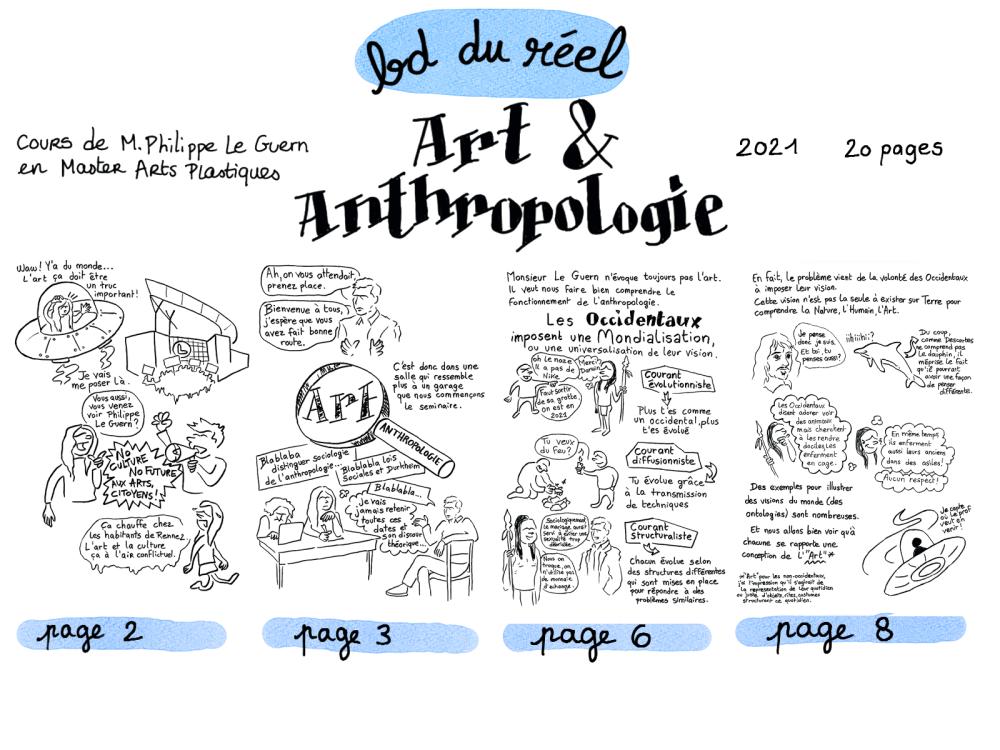 bd du réel
Art &
Anthropologie
Cours de M. Philippe Le Guern
en Master Arts Plastiques
2021 20 pages
Waw! Y'a du monde...
L'art ça doit être
un truc
important!
Je vais
me poser là.
Vous aussi,
vous venez
voir Philippe
Le Guern?
No
CULTURE
No FUTURE
AUX ARTS,
CITOYENS!
Ça chauffe chez
les habitants de Rennez.
L'art et la culture
ça a l'air conflictuel.
page 2
Ah, on vous attendait,
prenez place.
Bienvenue à tous,
j'espère que vous
avez fait bonne
route.
C'est donc dans une
salle qui ressemble
plus à un garage
que nous commençons
le seminaire.
ART
ANTHROPOLOGIE
Blablaba
distinguer sociologie
de l'anthropologie
Blablabla lois
Sociales et Durkheim
Blablabla...
Je vais
jamais retenir
toutes ces
dates et
son discours
théorique...
page 3
Monsieur Le Guern n'évoque toujours pas l'art.
Il veut nous faire bien comprendre le
fonctionnement de l'anthropologie.
Les Occidentaux
imposent une Mondialisation,
ou une universalisation de leur vision.
oh le naze
il a pas de
Nike
Faut sortir
de sa grotte,
on est en
2021
Darwin
Courant
évolutionniste
Plus t'es comme
un occidental, plus
t'es évolué
Tu veux
du feu?
Courant
diffusionniste
Tu évolue grâce
à la transmission
de techniques
Sociologiquement,
le mariage aussi
servi à éviter une
sexualité trop
débridée
Nous on
troque, on
n'utilise pas
de monnaie
d'échange
Courant
structuraliste
Chacun évolue selon
des structures différentes
qui sont mises en place
pour répondre à des
problèmes similaires.
page 6
En fait, le problème vient de la volonté des Occidentaux
à imposer leur vision.
Cette vision n'est pas la seule à exister sur Terre pour
comprendre la Nature, l'Humain, l'Art.
Je pense
donc je suis.
Et toi, tu
penses aussi?
iihiihi?
Du coup,
comme Descartes
ne comprend pas
le dauphin, il
méprise le fait
qu'il pourrait
avoir une façon
de penser
différente.
Les Occidentaux
disent adorer voir
des animaux
mais cherchent
à les rendre
dociles, les
enferment
en cage.
En même temps
ils enferment
aussi leurs anciens
dans des asiles!
Aucun respect!
Des exemples pour illustrer
des visions du monde (des
ontologies) sont nombreuses.
Et nous allons bien voir qu'à
chacune se rapporte une
conception de l'"Art"*
*"Art" pour les non-occidentaux,
j'ai l'impression qu'il s'agirait de
la représentation de leur quotidien
d'objets, rites, costumes
structurant ce quotidien.
Je capte
où le prof
veut en
venir!
page 8